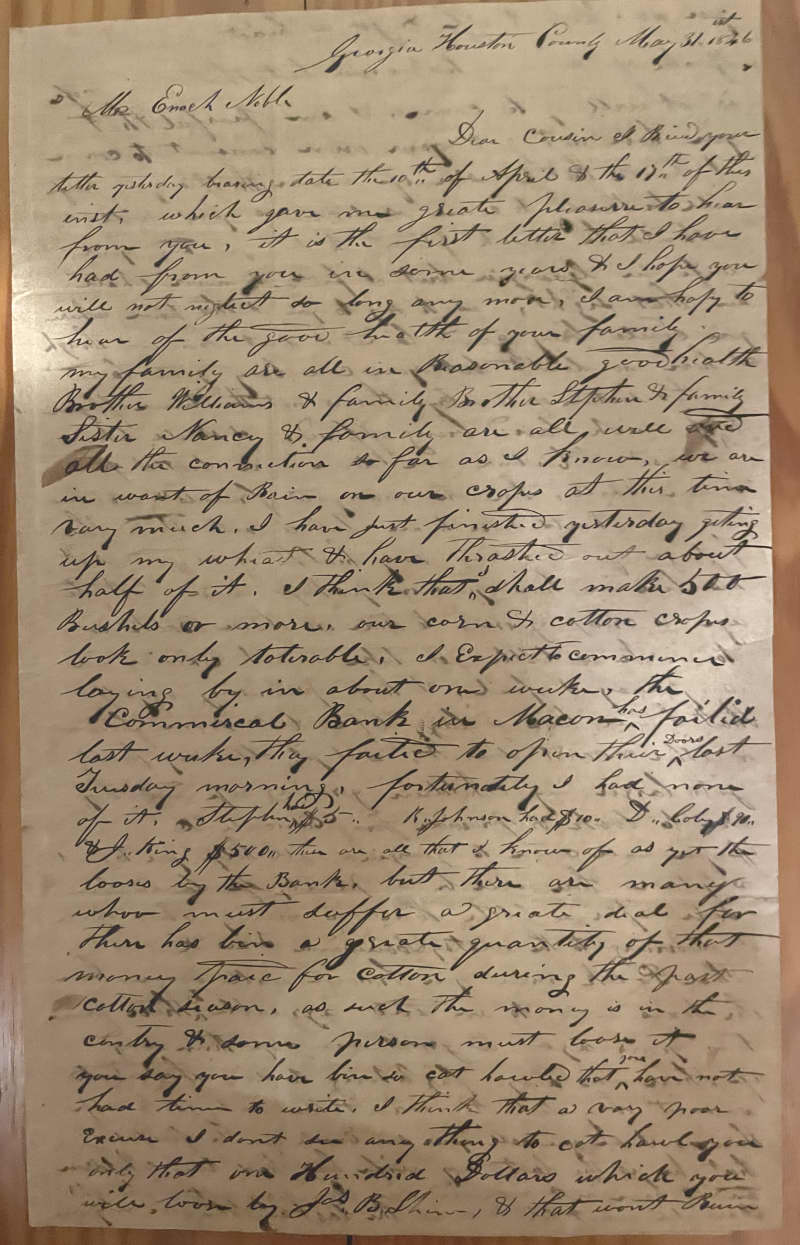 Georgia Houston County May 31st 1846
Mr Enoch Noble
Dear Cousin I Recd your
letter yesterday bearing date the 10th of April & the 17th of this
inst. which gave me greate pleasure to hear
from you, it is the first letter that I have
had from you in some years & I hope you
will not neglect so long any more, I am hapy to
hear of the good health of your family.
my family are all in Reasonable good health
Brother Williams & family Brother Stephen & family
Sister Nancy & family are all well and
all the connection so far as I know, we are
in want of Rain on our crops at this time
vary much. I have just finished yesterday geting
up my wheat & have thrashed out about
half of it. I think that I shall make 500
Bushels or more. our corn & cotton crops
look only tolerable, I Expect to commence
laying by in about one weeke, the
Commercal Bank in Macon has failid
last weeke, they failed to open their Doors last
Tuesday morning, fortunately I had none
of it. Stephen had $5.. R. Johnson had $10.. D..  $90..
& J.. King $500.. these are all that I know of as yet the
looses by the Bank, but there are many
whoo must suffer a greate deal for
there has bin a greate quantity of that
money paid for cotton during the past
cotton season, as such the money is in the
contry & some person must loose it
you say you have bin so cat hawled that you have not
had time to write. I think that a vary poor
Excuse I dont see any thing to cat hawl you
only that one Hundrid Dollars which you
will loose by Jas. B. , & that wont Ruin